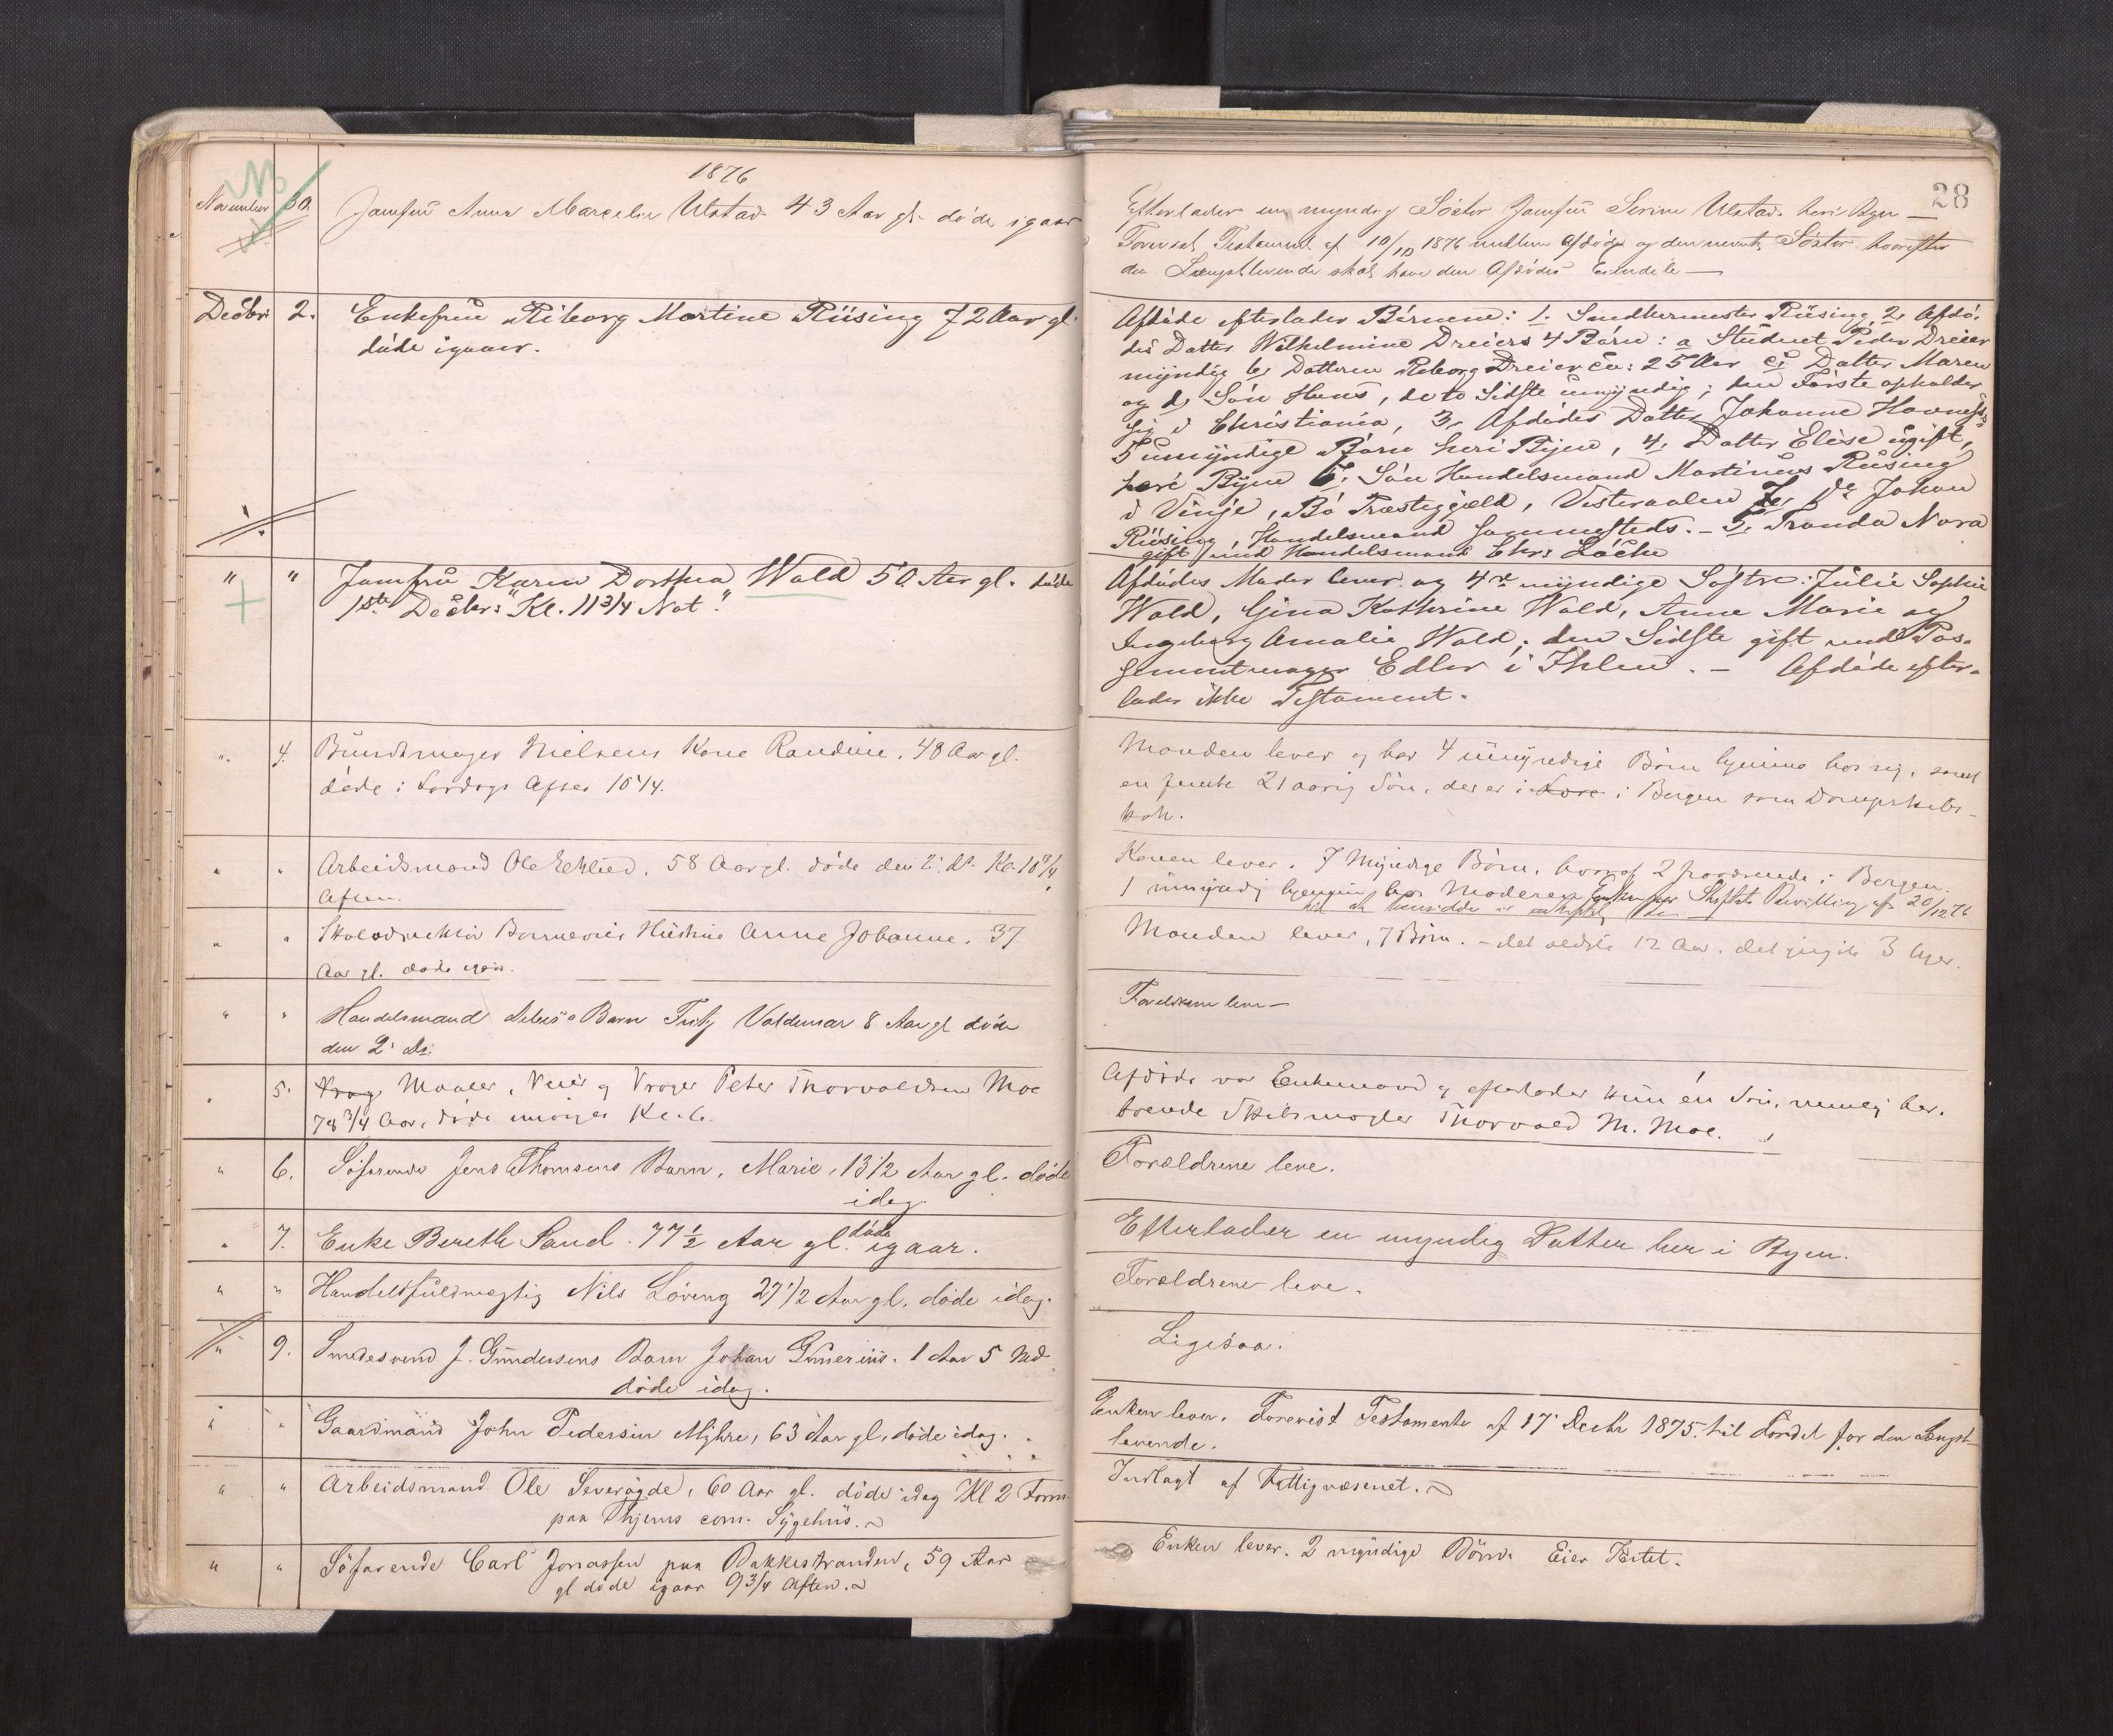 1876
November 30. Jomfru Anna Marcelie Ulstad 43 Aar gl. døde igaar
Decbr. 2. Enkefrue Riborg Martine Rüsing 72 Aar gl.
døde igaar.
" " Jomfru Karen Dorthea Wold 50 Aar gl. døde
1ste Decbr: Kl. 11 3/4 Nat.
" 4. Bundtmager Nielsens Kone Randine, 48 Aar gl.
døde Lørdags Aften 10 1/4.
" " Arbeidsmand Ole 58 Aar gl. døde den 2. ds. Kl. 10 3/4
Aften.
" " Hustrue Anne Johanne, 37
Aar gl. døde igaar.
" " Handelsmand Barn Fritz Valdemar 8 Aar gl døde
den 2' ds.
" 5. Vrag Maaler, Veier og Vrager Peter Thorvaldsen Moe
78 3/4 Aar, døde imorges Kl. 6.
" 6. Søfarende Jens Thomsens Barn, Marie, 13 1/2 Aar gl. døde
idag.
" 7. Enke Berethe Sand. 77 1/2 Aar gl. døde igaar.
" " Handelsfuldmægtig Nils Løveng 27 1/2 Aar gl. døde idag.
" 9. Smedesvend J. Gundersens Barn Johan 1 Aar 5 Md
døde idag.
" " Gaardmand John Pedersen Myhre, 63 Aar gl, døde idag.
" " Arbeidsmand Ole 60 Aar gl. døde idag Kl 2 Form.
paa Thjems com. Sygehus.
" " Søfarende Carl Jonassen paa Bakkestranden, 59 Aar
gl døde igaar 9 3/4 Aften.
28
Efterlader en myndig Søster Jomfru Serine Ulstad her i Byen
Forevist Testament af 10/10 1876 mellem Afdøde og den nevnte Søster hvorefter
den Længstlevende skal have den Afdødes Eiendele
Afdøde efterlader Børnene: 1. Rüsing, 2, Afdø-
des Datter Wilhelmine Dreiers 4 Børn: a Student Peder Dreier
myndig b, Datteren Riborg Dreier ca: 25 Aar c, Datter Maren
og d, Søn Hans, de to Sidste umyndig; den Første opholder
sig i Christiania, 3, Afdødes Datter Johanne
5 umyndige Børn heri Byen, 4, Datter Elise ugift,
heri Byen 5, Søn Handelsmand Martinus Rüsing
i Vinje, Bø Præstegjæld, Vesteraalen do Johan
Rüsing, Handelsmand sammesteds. - 5, Tranda Nora
gift med Handelsmand Chr: Løcke
Afdødes Moder lever og 4re myndige Søstre: Julie Sophie
Wold, Gina Kathrine Wold, Anne Marie og
Ingeborg Amalie Wold; den Sidste gift med Pos-
sementmager Edler i Ihlen. - Afdøde efter-
lader ikke Testament.
Manden lever og har 4 umyndige Børn hjemme hos sig, samt
en femte 21 aarig Søn, der er i i Bergen som Dampskibs-
kok.
Konen lever. 7 Myndige Børn, hvoraf 2 fraværende i Bergen.
1 umyndig hjemme hos Moderen Bevilling af 20/12 76
Manden lever, 7 Børn. - det ældste 12 Aar. det yngste 3 Uger.
Forældrene leve -
Afdøde var Enkemand og efterlader kun én Søn, nemlig her-
boende Skibsmægler Thorvald M. Moe.
Forældrene leve.
Efterlader en myndig Datter her i Byen.
Forældrene leve.
Ligesaa.
Enken lever. Forevist Testamente af 17' Decbr 1875 til Fordel for den Længst-
levende.
Indlagt af Fattigvæsenet.
Enken lever. 2 myndige Børn. Eier Intet.